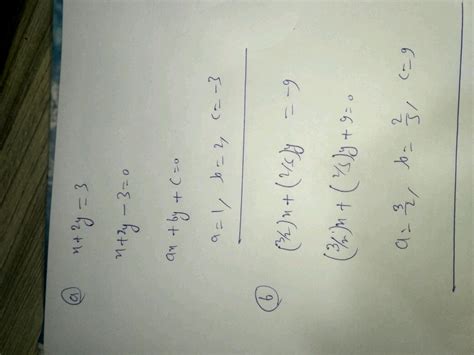 (a) x+2y=3
x+2y-3=0
ax+by+c=0
a=1, b=2, c=-3
(b) (3/2)x+(2/3)y = -9
(3/2)x+(2/3)y+9=0
a=3/2, b=2/3, c=9